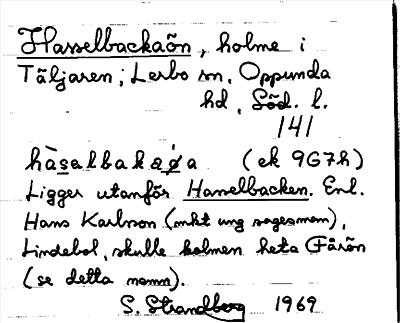 Hasselbackaön, holme i
Täljaren; Lerbo sn, Oppunda
hd, Söd. l.
141
hàsalbakaǿa (ek 9G7h)
Ligger utanför Hasselbacken. Enl.
Hans Karlsson (mkt ung sagesman),
Lindebol, skulle holmen heta Fårön
(se detta namn).
S. Strandberg 1969